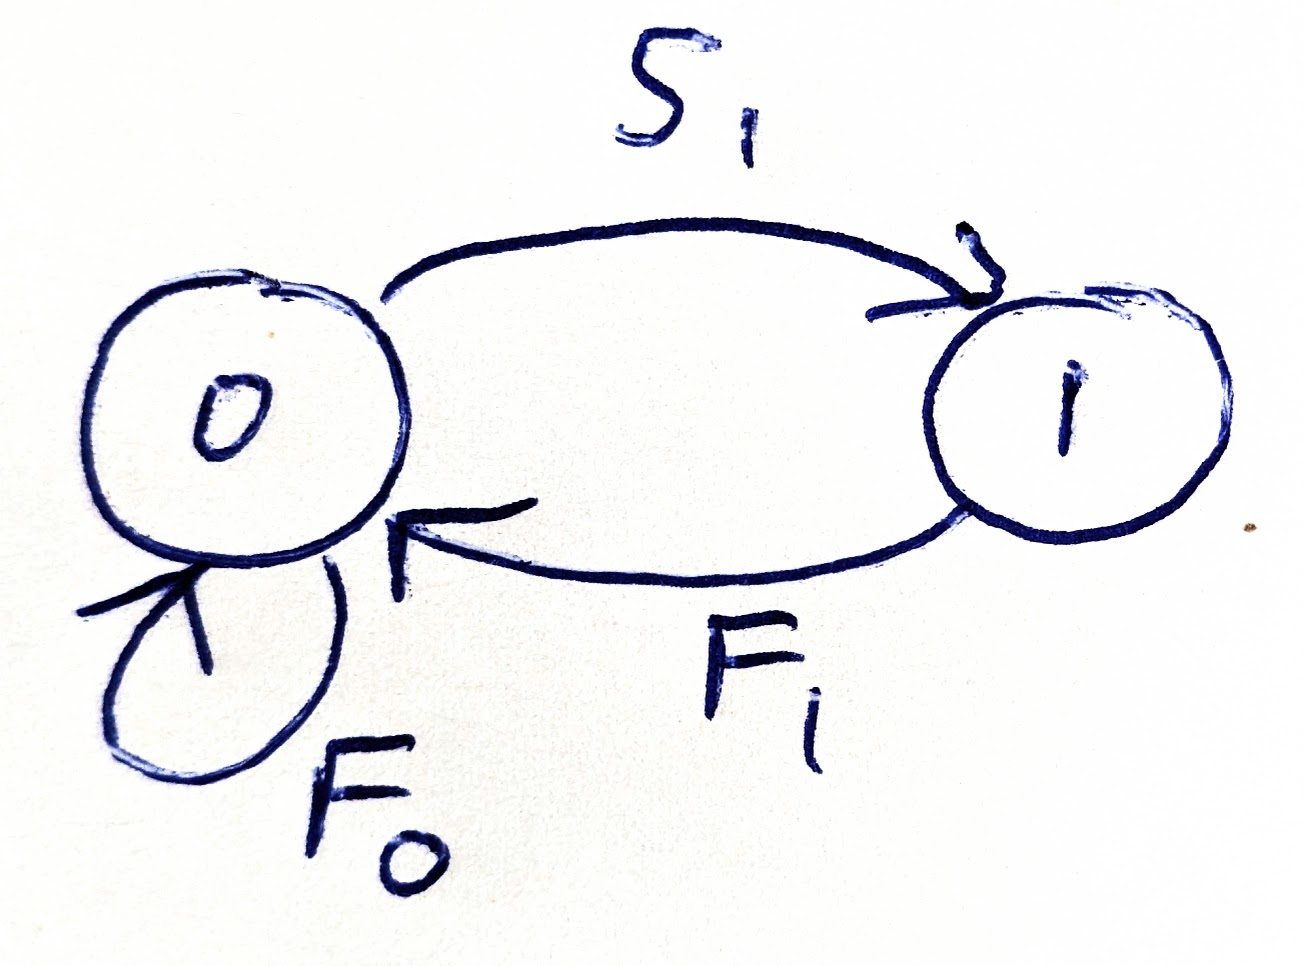 S₁
0
1
F₁
F₀